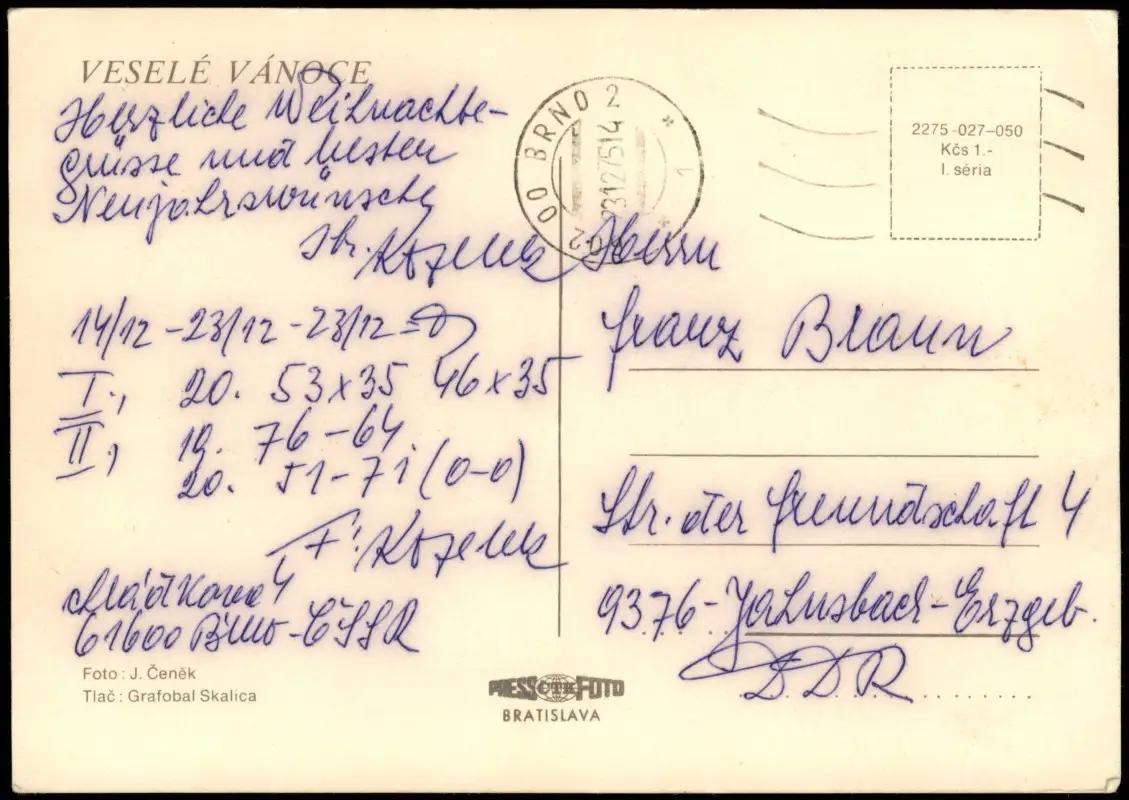 VESELÉ VÁNOCE
Herzliche Weihnachts-
grüsse und besten
Neujahrswünsche
Kozelek
14/12 - 23/12 - 23/12 =
I., 20. 53 x 35 46 x 35
II., 19. 76 - 64
20. 51 - 71 (0-0)
F. Kozelek
Mádkova 4
61600 Brno - ČSSR
Foto : J. Čeněk
Tlač : Grafobal Skalica
PRESS ČTK FOTO
BRATISLAVA
602 00 BRNO 2
23.12.75 14
1
2275-027-050
Kčs 1.-
I. séria
Herrn
Franz Braun
Str. der Freundschaft 4
9376 - Jahnsbach - Erzgeb.
DDR